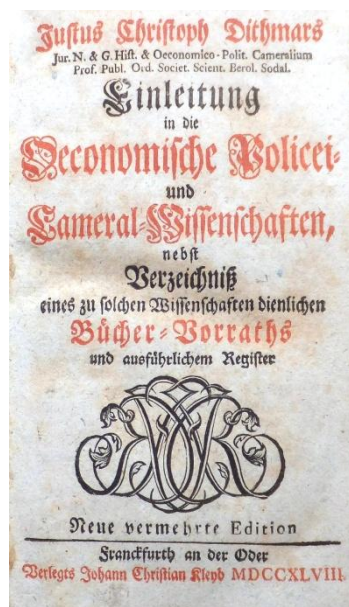 Justus Christoph Dithmars
Jur. N. & G. Hist. & Oeconomico-Polit. Cameralium
Prof. Publ. Ord. Societ. Scient. Berol. Sodal.
Einleitung
in die
Oeconomische Policei-
und
Cameral-Wissenschaften,
nebst
Verzeichniß
eines zu solchen Wissenschaften dienlichen
Bücher-Vorraths
und ausführlichem Register
Neue vermehrte Edition
Franckfurth an der Oder
Verlegts Johann Christian Kleyb MDCCXLVIII.